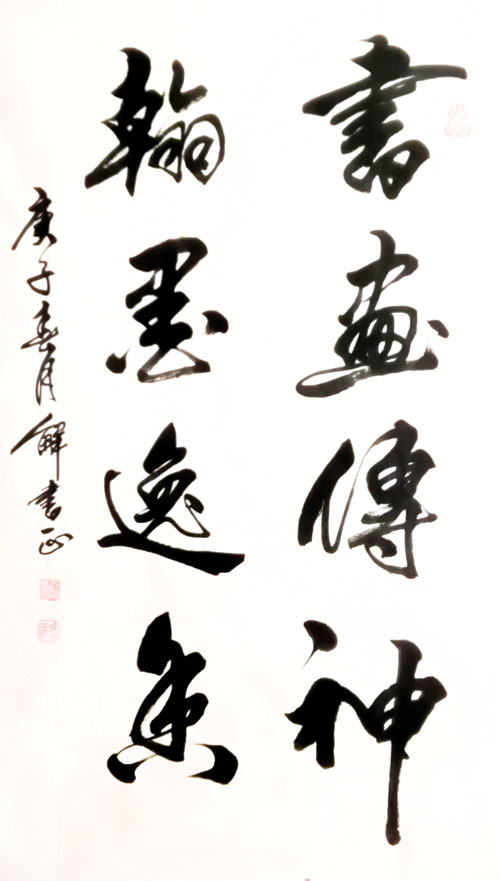 書畫傳神
翰墨逸香
庚子春月解書正